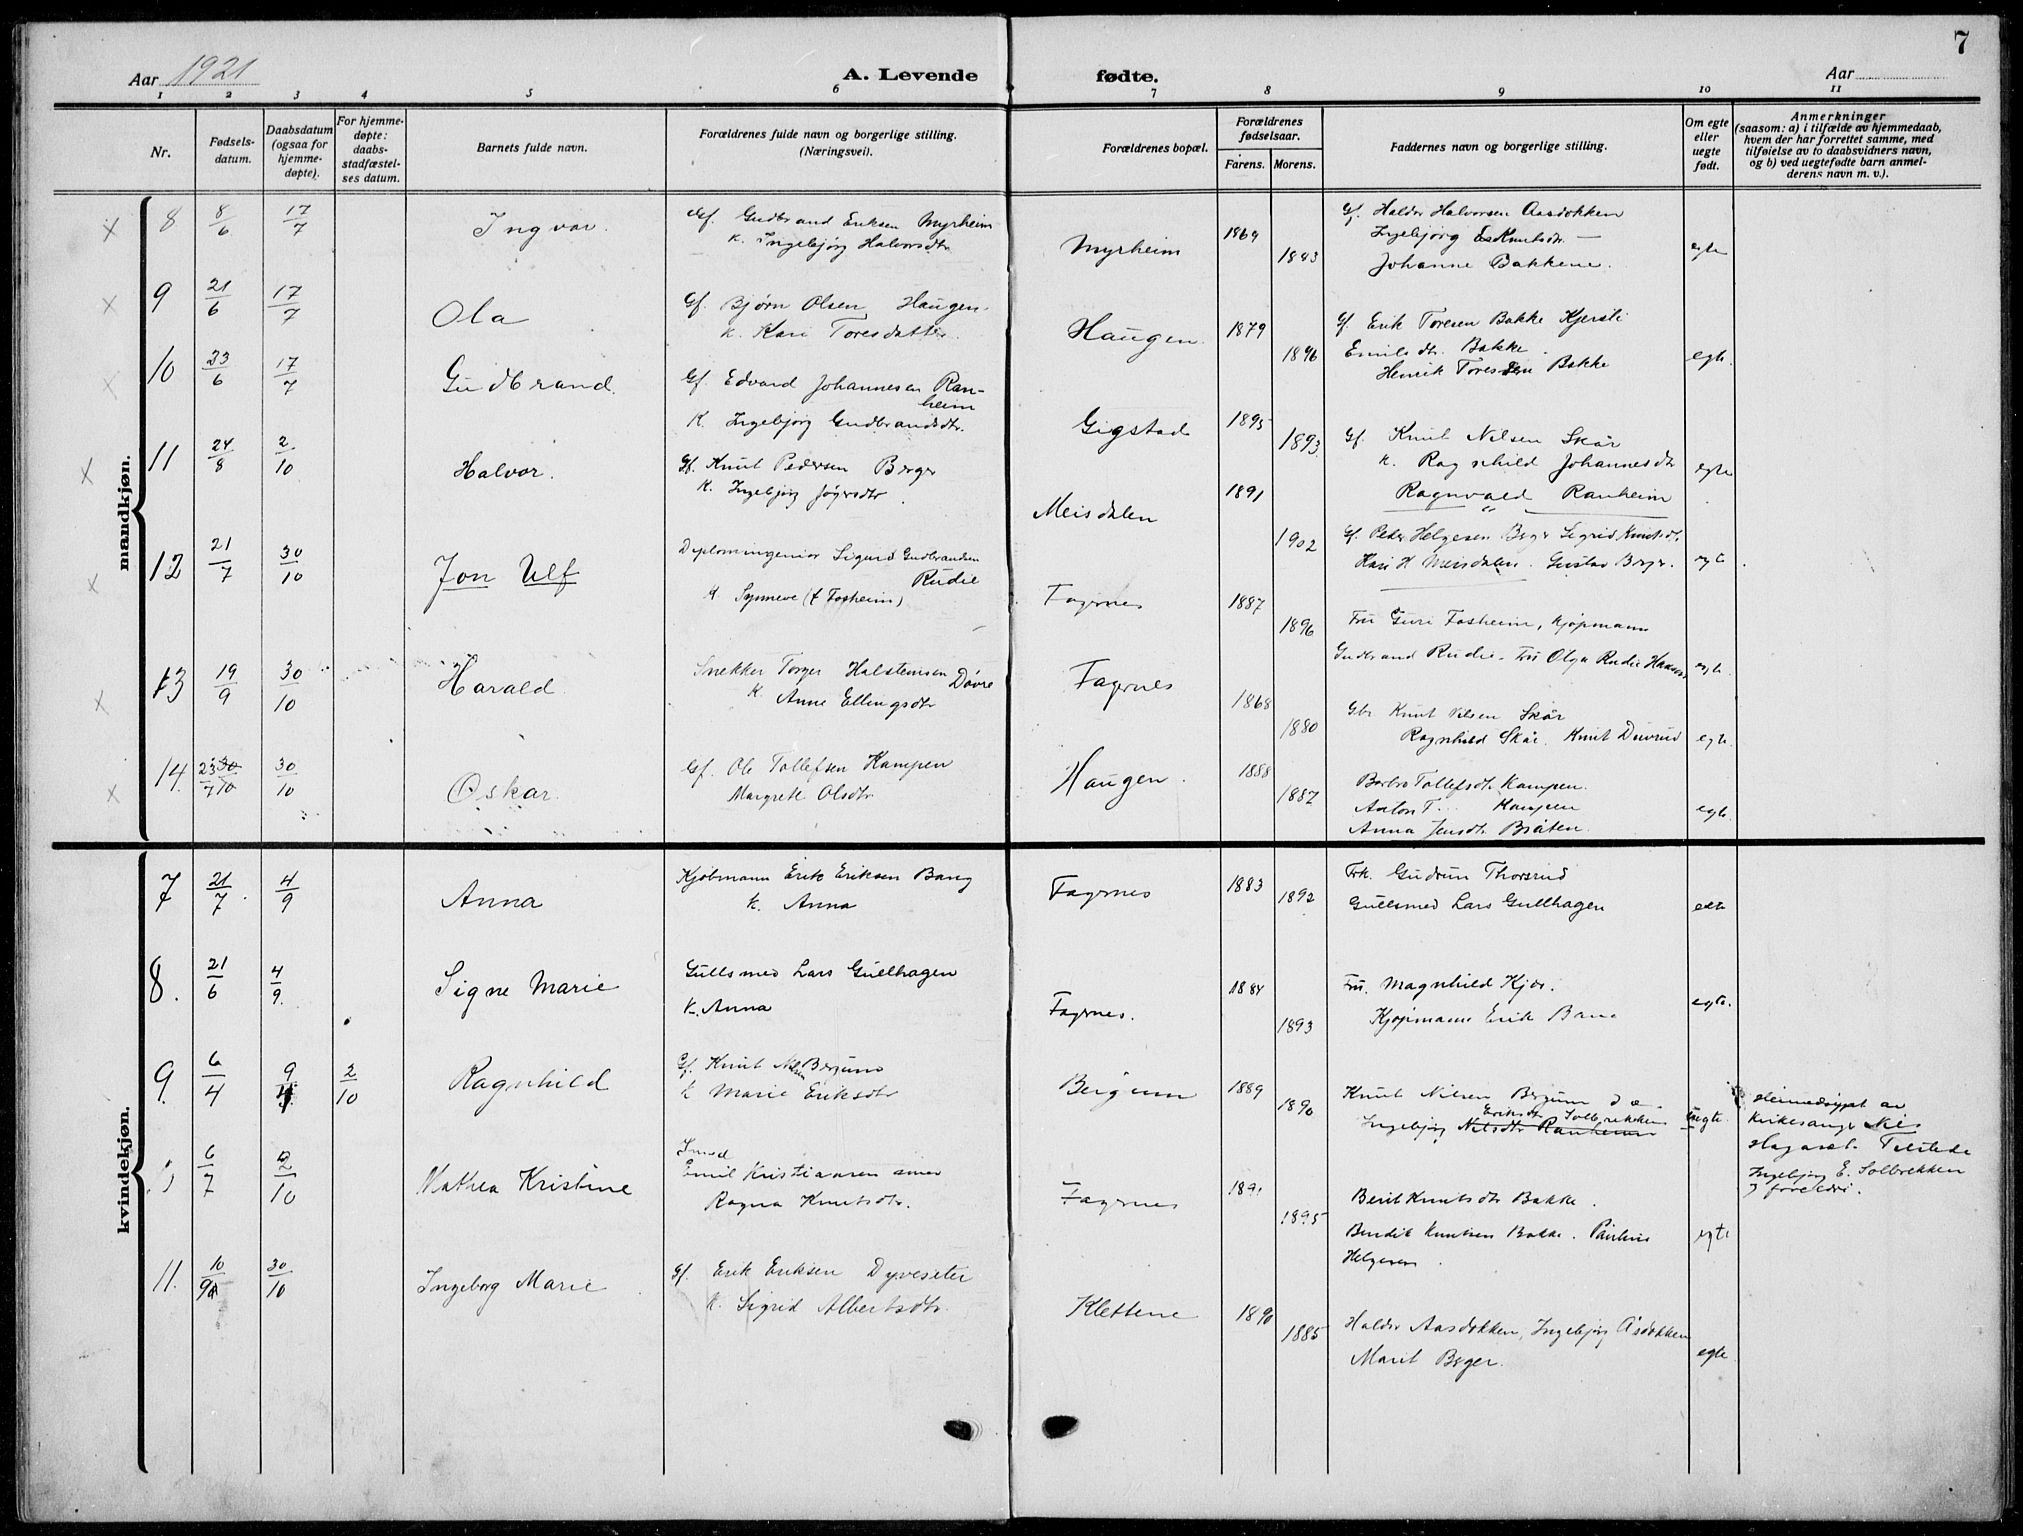 7
Aar 1921
A. Levende
fødte.
Aar
1 2 3 4 5 6 7 8 9 10 11
Nr.
Fødsels-
datum.
Daabsdatum
(ogsaa for
hjemme-
døpte).
For hjemme-
døpte:
daabs-
stadfæstel-
ses datum.
Barnets fulde navn.
Forældrenes fulde navn og borgerlige stilling.
(Næringsvei).
Forældrenes bopæl.
Forældrenes
fødselsaar.
Farens. Morens.
Faddernes navn og borgerlige stilling.
Om egte
eller
uegte
født.
Anmerkninger
(saasom: a) i tilfælde av hjemmedaab,
hvem der har forrettet samme, med
tilføielse av to daabsvidners navn,
og b) ved uegtefødte barn anmel-
derens navn m. v.).
mandkjøn.
8 8/6 17/7 Ingvar. Gf. Gudbrand Eriksen Myrheim
K. Ingebjørg Halvorsdtr.
Myrheim 1869 1883
Gf. Haldor Halvorsen Aasdokken
Ingebjørg Knutsdtr. —
Johanne Bakkene.
egte
9 21/6 17/7 Ola Gf. Bjørn Olsen Haugen.
K. Kari Toresdatter.
Haugen. 1879 1896
Gf. Erik Toresen Bakke Kjersti
Emilsdtr. Bakke.
Henrik Toresen Bakke
egte.
10 23/6 17/7 Gudbrand. Gf. Edvard Johannesen Ran-
heim
K. Ingebjørg Gudbrandsdtr.
Gigstad 1895 1893
Gf. Knut Nilsen Skår
K. Ragnhild Johannesdtr
Ragnvald Ranheim
egte
11 24/8 2/10 Halvor. Gf. Knut Pedersen Berger
K. Ingebjørg
Meisdalen 1891 1902
Gf. Peder Helgesen Sigrid Knutsdtr.
Kari H Meisdalen. Gustav
egte
12 21/7 30/10 Jon Ulf Diplomingeniør Sigurd Gudbrandsen
Rudie
K Synneve (f Fosheim)
Fagernes 1887 1896
Fru Guri Fosheim, Kjøpmann
Gudbrand Rudie. Fru Olga Rudie
egte.
13 19/9 30/10 Harald. Snekker Torger Halstensen Dovre
K. Anne Ellingsdtr
Fagernes 1868 1880
Gbr Knut Nilsen Skår
Ragnhild Skår. Knut
egte.
14. 23/7 30/10 30/10 Oskar. Gf. Ole Tollefsen Kampen
Margrete Olsdtr.
Haugen. 1888 1887
Barbro Tollefsdtr. Kampen.
Anton T. Kampen
Anna Jensdtr. Bråten.
egte.
kvindekjøn.
7 21/7. 4/9 Anna Kjøbmann Erik Eriksen Bang
K. Anna
Fagernes 1883 1892
Frk. Gudrun Thorsrud
Gullsmed Lars Gullhagen
8. 21/6 4/9. Signe Marie Gullsmed Lars Gullhagen
K. Anna
Fagernes. 1884 1893
Fru. Magnhild Kjos.
Kjøpmann Erik Bang
egte.
9. 6/4 9/4 2/10 Ragnhild Gf. Knut Nilsen Bergum
K Marie Eriksdtr
Bergum 1889 1890
Knut Nilsen Bergum d. e.
Eriksdtr. Solbrekken
Ingebjørg Nilsdtr Ranheim
egte.
Heimedøypt av
kirkesanger Nils
Tilstede
Ingebjørg E. Solbrekken
og foreldri.
6/7 2/10 Mathea Kristine Smed
Emil Kristiansen
Ragna Knutsdtr.
Fagernes 1891 1895
Berit Knutsdtr Bakke.
Bendik Knutsen Bakke. Pauline
Helgesen.
egte
11. 10/9 30/10 Ingeborg Marie Gf. Erik Eriksen Dyveseter
K. Sigrid Albertsdtr.
Klettene 1890 1885
Haldor Aasdokken, Ingebjørg Åsdokken
Marit Berger.
egte